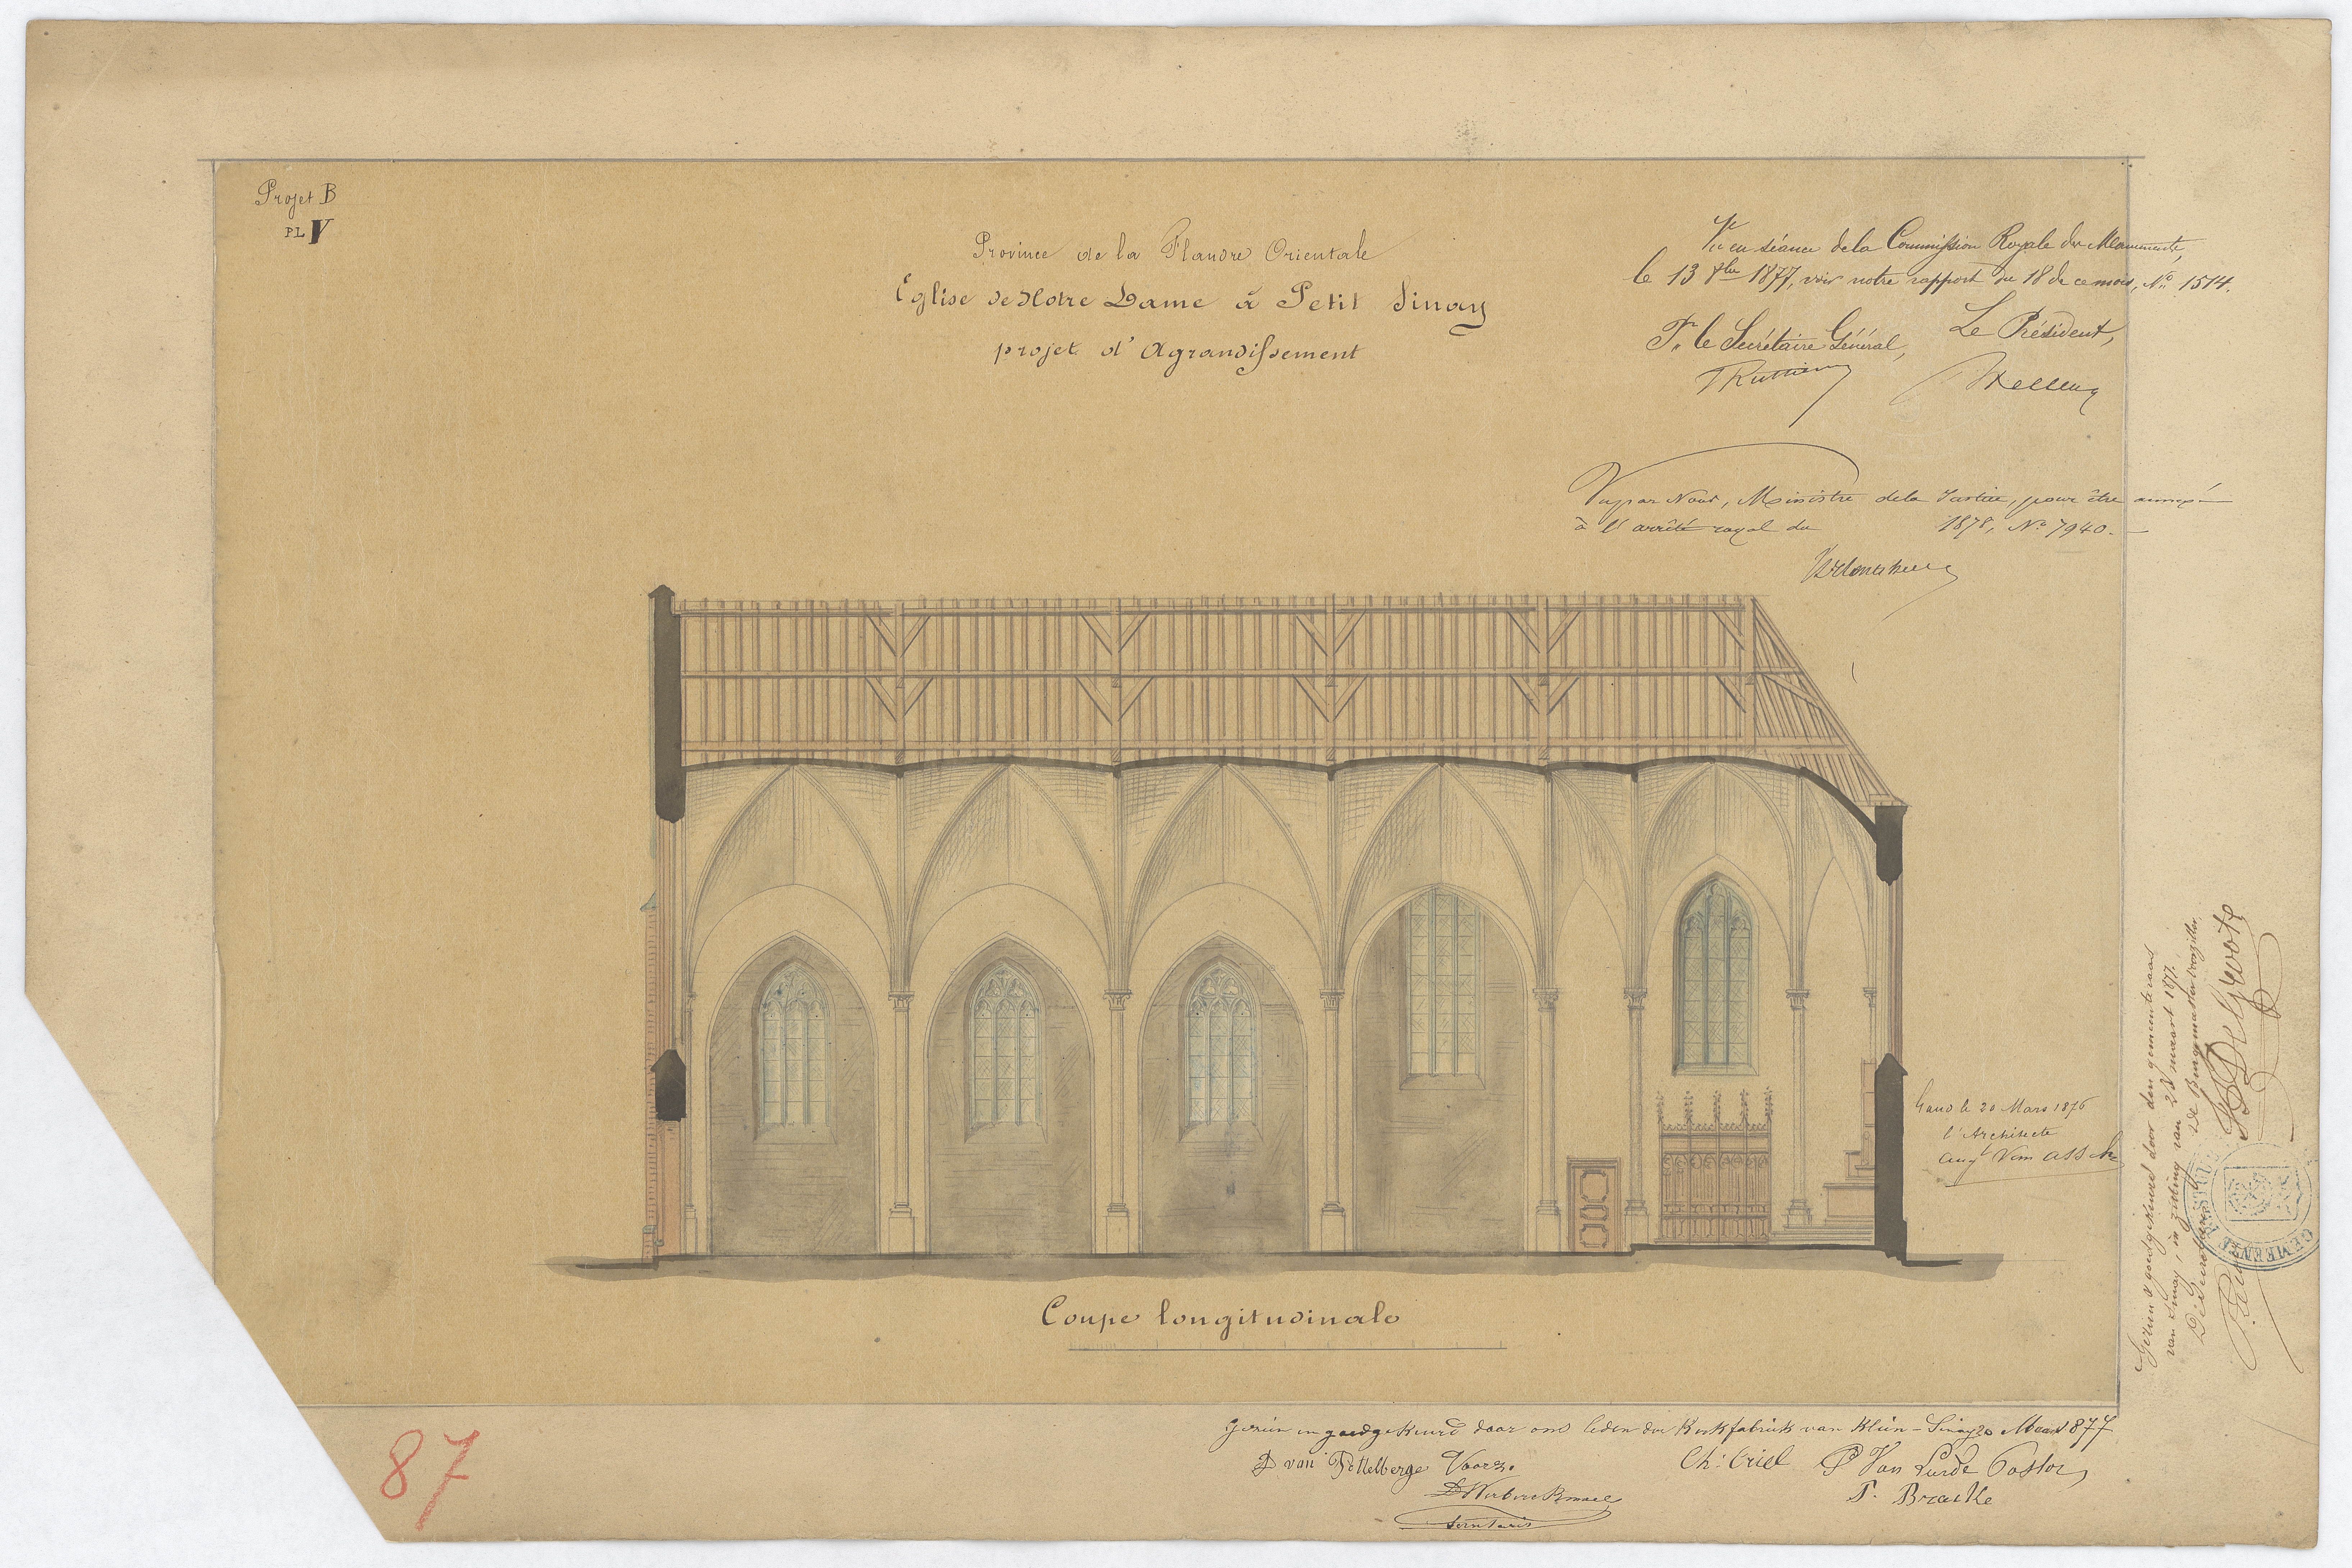 Projet B
PL V
Province de la Flandre Orientale
Eglise de Notre Dame à Petit Sinay
projet d'Agrandissement
Vu en séance de la Commission Royale des Monuments,
le 13 8bre 1877, voir notre rapport du 18 de ce mois, N° 1514.
Pr le Secrétaire Général,
Le Président,
Wellens
Vu par Nous, Ministre de la Justice, pour être annexé
à l'arrêté royal du 1878, N° 7940.
Gand le 20 Mars 1876
l'Architecte
Augt Van Assche
Coupe longitudinale
Gezien en goedgekeurd door ons leden der Kerkfabriek van Klein-Sinay 20 Maart 1877
D van Pottelberge Voorz.
Ch: Criel
P Van Lierde Pastor
T. Bracke
Secretaris
Gezien & goedgekeurd door den gemeenteraad
van Sinay, in zitting van 28 maart 1877.
De Secretaris
De Burgemeester Voorzitter,
De Grootte
GEMEENTE
87